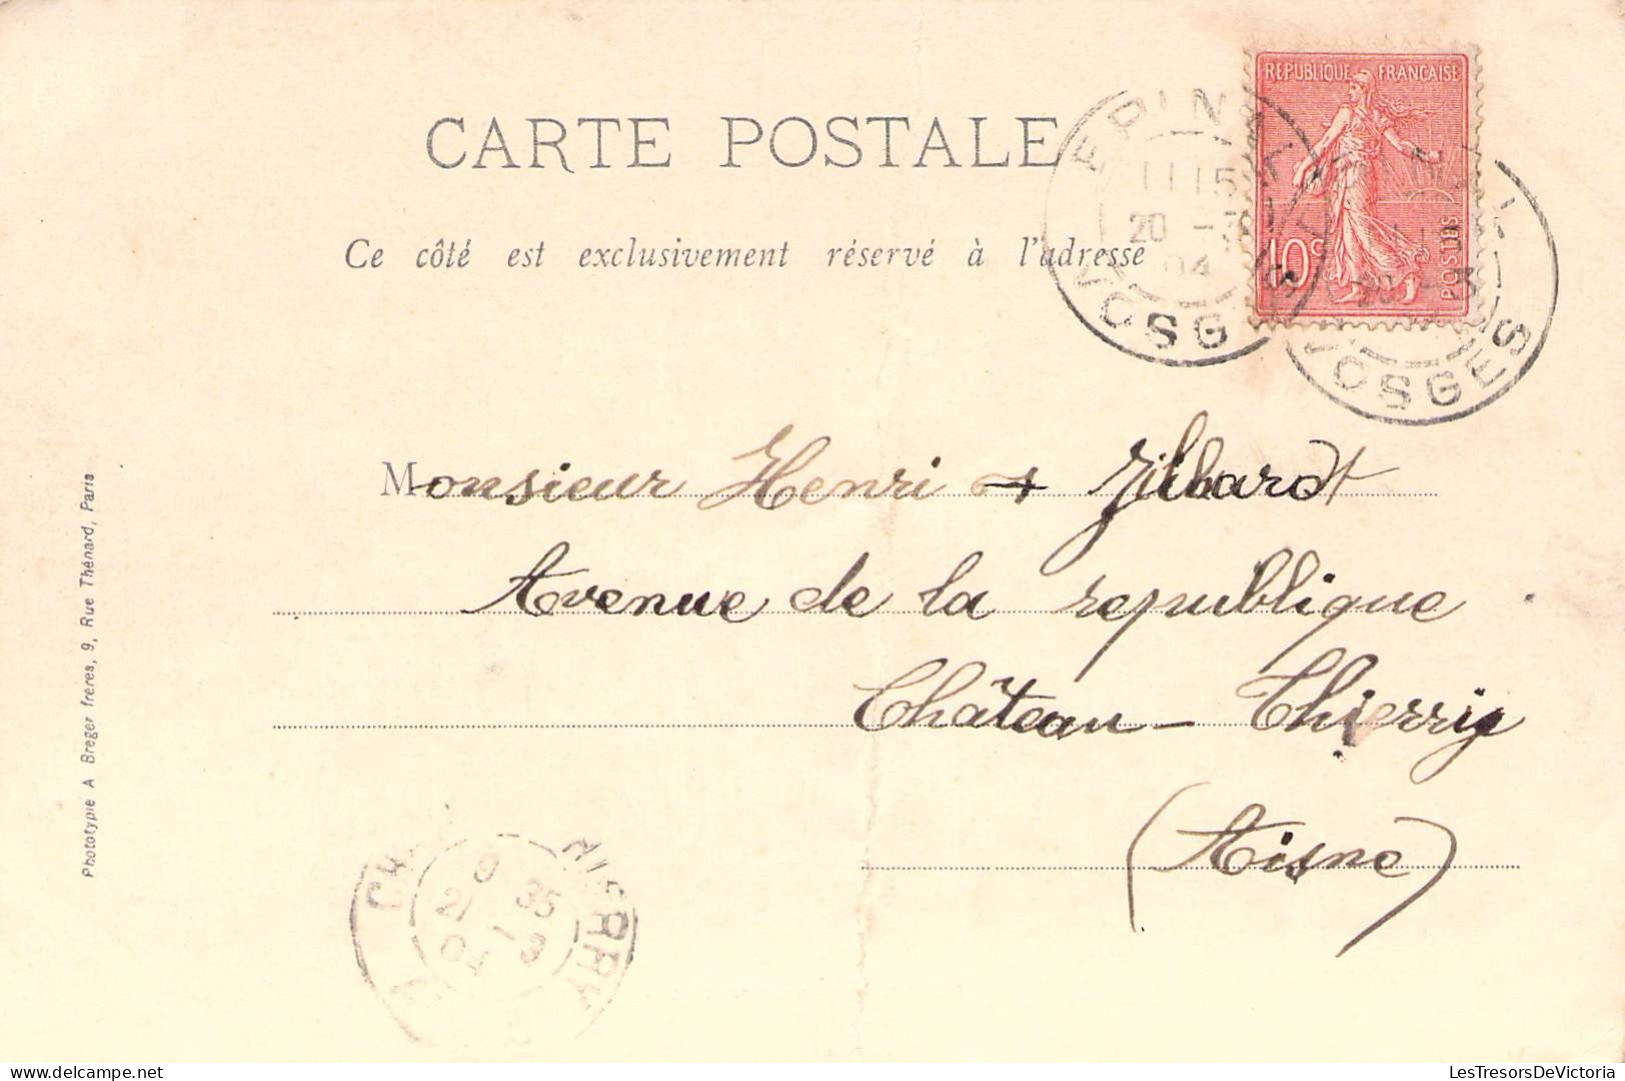 REPUBLIQUE FRANCAISE
10c POSTES
EPINAL
11 15
20 - 3
04
VOSGES
VOSGES
CARTE POSTALE
Ce côté est exclusivement réservé à l'adresse
Monsieur Henri
Avenue de la republique
Château-Thierry
(Aisne)
9 35
21 - 3
04
Phototypie A Breger frères, 9, Rue Thénard, Paris
LesTresorsDeVictoria